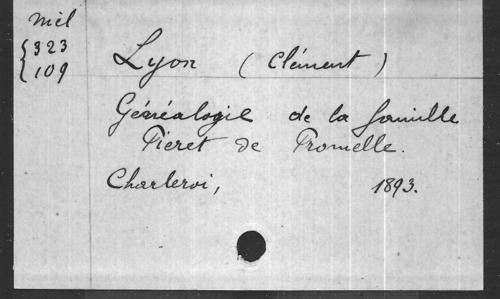 Mél
323
109
Lyon (Clément)
Généalogie de la famille
Pieret de Fromelle.
Charleroi, 1893.